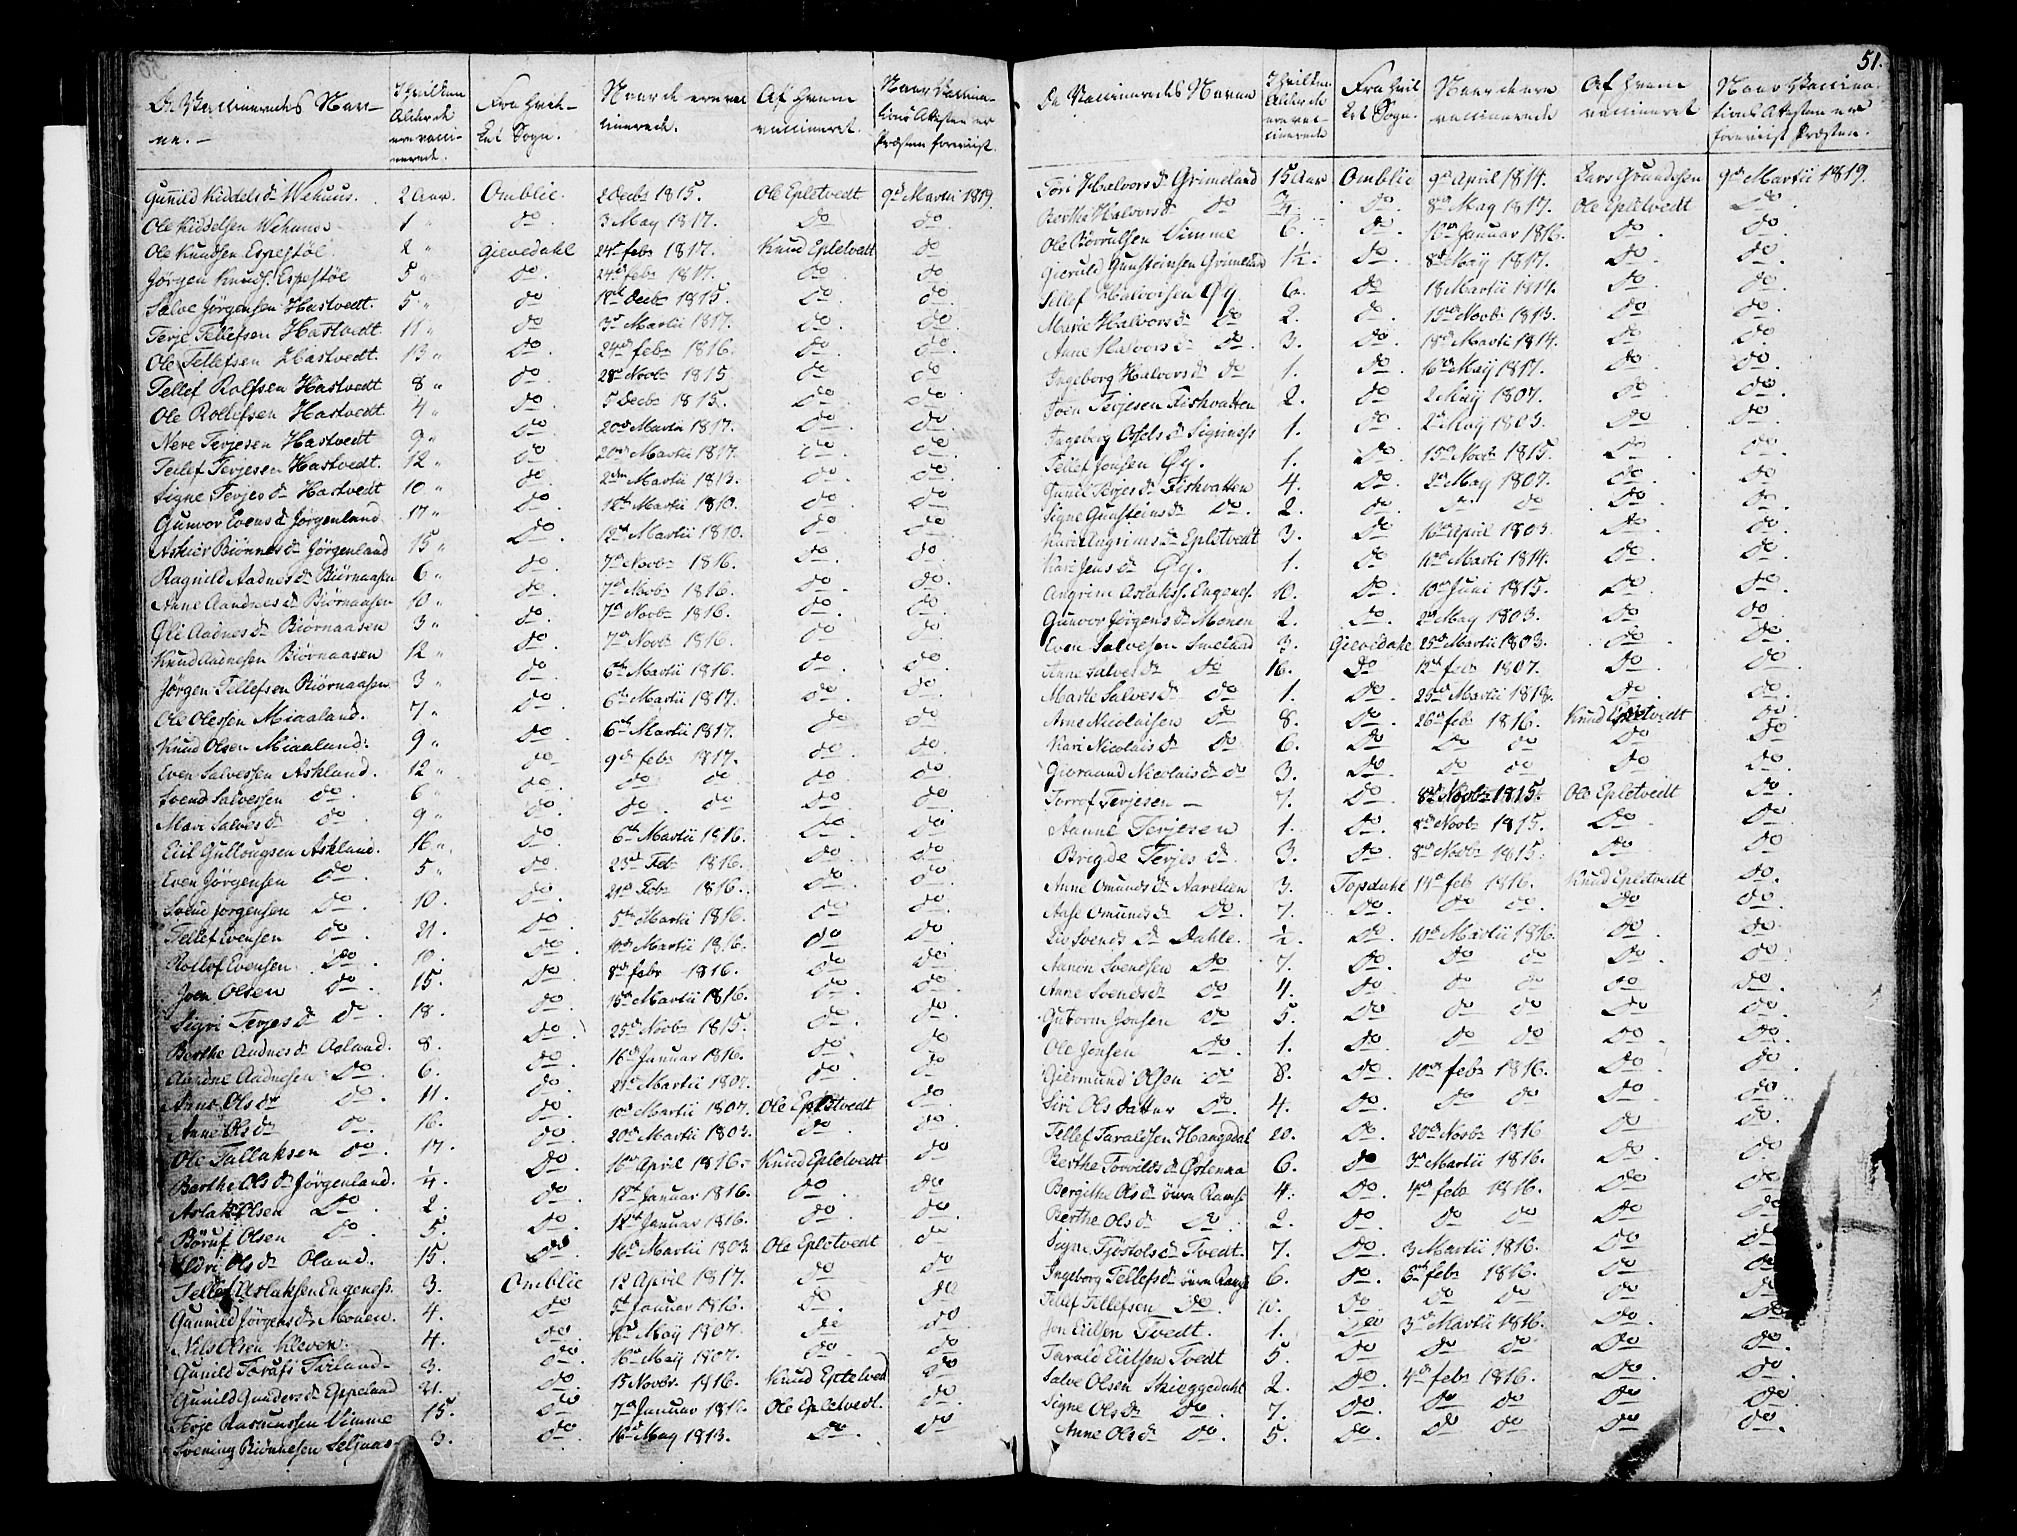 51.
De Vaccineredes Nav-
ne. -
I hvilken
Alder de
ere vacci-
nerede.
Fra hvil-
ket Sogn.
Naar de ere vac
cinerede.
Af hvem
vaccineret.
Naar Vaccina-
tions Attesten er
Præsten foreviist.
Gunild Kiddels dr Wehuus. 2 Aar. Omblie. 2 Decbr 1815. Ole Epletvedt 9de Martii 1819.
Ole Kiddelsen Wehuus 1 " do. 3 May 1817. Do do.
Ole Knudsen Espestøl. 2 " Gievedahl 24de febr 1817. Knud Epletvedt do
Jørgen Knuds. Espestøl 5 " do. 24de febr 1817. Do. do
Salve Jørgensen Hastvedt. 5 " do 18de Decbr 1815. do. do.
Terje Tellefsen Hastvedt 11 " do. 3de Martii 1817. Do. do.
Ole Tellefsen Hastvedt. 13 " Do. 24de febr 1816. Do. do.
Tellef Rolfsen Hastvedt 8 " do. 28de Novbr 1815 do do.
Ole Rollefsen Hastvedt. 4 " do. 5 Decbr 1815. Do. do.
Nere Terjesen Hastvedt 9 " do. 20de Martii 1817. do. do.
Tellef Terjesen Hastvedt. 12 " do. 20de Martii 1817. do. do.
Signe Terjes dr Hastvedt 10 " do. 2den Martii 1813. do. do.
Gunvor Evens dr Jørgenland 17 " do. 12te Martii 1810. do. do.
Biønnes dr Jørgenland 15 " Do. 12te Martii 1810. do do.
Ragnild Aadnes dr Biørnaasen 6 " do. 7de Novbr 1816. do. do.
Anne Aandnes dr Biørnaasen 10 " do. 7de Novbr 1816. do. do.
Aadnes dr Biørnaasen 3 " do. 7de Novbr 1816. do. do.
Knud Aadnesen Biørnaasen 12 " do. 7de Novbr 1816. do. do.
Jørgen Tellefsen Biørnaasen 3 " do. 6te Martii 1816. do do.
Ole Olessen Miaaland. 7 " do. 6te Martii 1817. do. do.
Knud Olsen Miaaland. 9 " do. 6te Martii 1817. do do.
Even Salvessen Askland. 12 " do. 9de febr 1817. do. do.
Svend Salvessen do. 6 " do. do do do do.
Mari Salves dr do. 9 " do. do do Do. do
Eiil Gullougsen Askland. 16 " do. 6te Martii 1816. Do. do.
Even Jørgensen do. 5 " do. 23de Feb 1816. do. do.
Svend Jørgensen do. 10. do. 21de Febr 1816. do. do.
Tellef Evensen do. 21. do. 5te Martii 1816. do do.
Rollof Evensen. do. 10. do. 10de Martii 1816. do do.
Joen Olsen do. 15. do. 8de febr 1816. do. do.
Sigri Terjes dr do. 18. do. 15de Martii 1816. do. do.
Berthe Aadnes dr 8. do. 25de Novbr 1815. do. do
Aandne Aadnesen do. 6. do. 16de Januar 1816. do. do.
Anne Ols dr do. 11. do. 21de Martii 1807. do. do.
Anne Ols dr do. 16. do. 10de Martii 1807. Ole Epletvedt do.
Ole Tallaksen do. 17. do. 20de Martii 1803. do. do.
Berthe Ols dr Jørgenland. ¼. Do. 16de April 1816. Knud Epletvedt do
Aslak Olsen do. 2. do. 12te Januar 1816. do. do.
Børuf Olsen do. 5. do. 12te Januar 1816. do. do.
Ols dr Oland. 15. do. 16de Martii 1803. Ole Epletvedt do
Tellef Aslaksen Engeness. 3. Omblie 12 April 1817. do do
Gunnild Jørgens dr Monen. 4. do 5te Januar 1816. do. do
Nils Olsen Kleven. 4. do. May 1807. do do.
Gunild 3. do. 16de Maij 1807. do. do
Gunild Gunders dr Eppeland 21. do. 15 Novbr. 1816. Knud Epletved do
Terje Rasmussen Vimme 15. do 7de Januar Ole Epletvedt. do.
Svening Biønnesen 3. do. 16de May 1813. do. do
De Vaccineredes Navne
I hvilken
Alder de
ere vac-
cinerede
Fra hvil
ket Sogn.
Naar de ere
vaccinerede
Af hvem
vaccineret
Naar Vaccina
tions Attesten er
foreviist Præsten.
Tori Halvors dr Grimeland 15 Aar Omblie 9de April 1814. Lars Goundesen 9de Martii 1819.
Berthe Halvors dr do ¾. do. 8de May 1817. Ole Epletvedt Do.
Ole Børrulsen Vimme 6. do. 10de Januar 1816. do. do.
Gieruld Gunsteinsen Grimeland 1½. do. 8de Maij 1817. do. do.
Tellef Halvorsen Øy. 6. do 18 Martii 1814. do. do.
Marie Halvors dr do 2. do. 13de Novbr 1813. do. do.
Anne Halvors dr do. 3. do. 18de Martii 1814. do do.
Ingeborg Halvors dr do 1. do. 16de May 1817. do. do.
Joen Terjesen Fiskvatten 2. do 2 Maij 1807. do do.
Ingeborg Ossels dr 1. do. 2de Maij 1803. do. do.
Tellef Jonsen Øy. 1. do. 13de Novbr 1815. do. do.
Gunild Terjes dr Fiskvatten 4. do 2de May 1807. do. do.
Signe Gunsteins dr do. 2. do do do do do.
Kari Angrims dr Epletvedt 3. do 16de April 1803. do. do.
Kari Jens dr Øy. 1. do Martii 1814. do. do.
Angrim Aslakss. Engenes. 10. do. 10de Juni 1815. do. do.
Gunvor Jørgens dr Monen 2. do. 2de May 1803. do do.
Even Salvesen Smeland 3. Gievedahl 25de Martii 1803. do do.
Anne Salves dr do 16. do 12te feb 1807. do. do.
Marte Salves dr do 1. do. 25de Martii 1818. do do.
Arne Nicolaisen do 8. do. 26de feb 1816. Knud Epletvedt do.
Kari Nicolais dr do 6. do do do do do
Nicolais dr do 3. do. do do do do.
Torrof Terjesen - 7. do. 8de Novbr 1815. Ole Epletvedt do.
Aanne Terjesen 1. do. 8de Novbr 1815. do. do.
Brigde Terjes dr 3. do. 8de Novbr 1815. do. do
Anne Omunds dr 3. Topdahl 14de feb 1816. Knud Epletvedt do.
Aase Omunds dr do. 7. do. do do. do do.
Liv Svends dr Dahle. ½. do. 10de Martii 1816. do. do.
Aanon Svendsen do 7. do. do do. do do.
Anne Svends dr do 4. do. do do do. do.
Gutorm Jonsen do 5. do. do do do do.
Ole Jonsen do. 1. do. do do. do. do.
Giermund Olsen do 8. do. 10de febr 1816. do. do.
Siri Ols datter do. 4. do. do do do. do
Tellef Taraldsen 20. do. 20de Novbr 1816 do do.
Berthe Torvilds dr Østenaa 6. do 3de Martii 1816. do. do.
Bergithe Ols dr øvre Ramse 4. do. 4de febr 1816. do do.
Berthe Ols dr do. 2. do. do do. do do.
Signe Tjöstols dr Tvedt. 7. do. 3 Martii 1816. do do
Ingeborg Tellefs dr øvre Ramse 6. do. 6te febr 1816. do do
Tellef Tellefsen do. 10. do do do do do
Jon Eiilsen Tvedt. 1. do 3de Martii 1816. do. do.
Tarald Eiilsen Tvedt 5. do do do. do. do.
Salve Olsen Skieggedahl 2. do. 4de febr 1816. do. do.
Signe Ols dr do. 7. do. do do. do do.
Anne Ols dr do. 5. do. do do. do do.